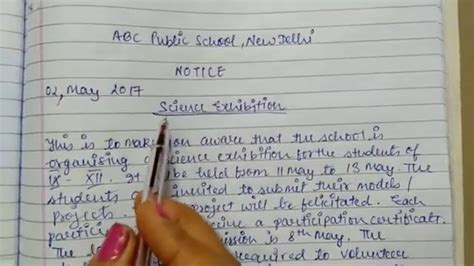 ABC Public School, New Delhi
NOTICE
02, May 2017
Science Exhibition
This is to make you aware that the school is
organising a science exhibition for the students of
IX - XII. It be held from 11 May to 13 May. The
students invited to submit their models /
projects. project will be felicitated. Each
partici a participation certificate.
The la mission is 8th May. The
required to volunteer